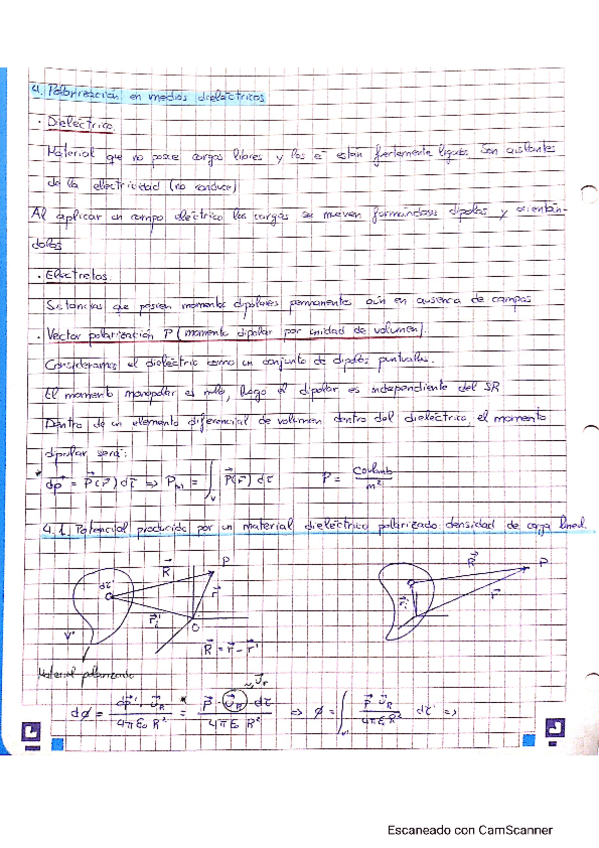 4. Polarización en medios dieléctricos
· Dieléctrico.
Material que no posee cargas libres y los e⁻ están fuertemente ligados. Son aislantes
de la electricidad (no conduce)
Al aplicar un campo eléctrico las cargas se mueven formándose dipolos y orientán-
dolos
· Electretos.
Sustancias que poseen momentos dipolares permanentes aún en ausencia de campos
· Vector polarización P (momento dipolar por unidad de volumen).
Consideramos el dieléctrico como un conjunto de dipolos puntuales.
El momento monopolar es nulo, luego el dipolar es independiente del SR
Dentro de un elemento diferencial de volumen dentro del dieléctrico, el momento
dipolar será:
* dp⃗ = P⃗(r⃗') dτ => P = ∫ᵥ P⃗(r⃗) dτ P = Coulomb / m²
4.1. Potencial producido por un material dieléctrico polarizado: densidad de carga
R⃗ P dτ' r⃗ r⃗' O V'
R⃗ = r⃗ - r⃗'
R⃗ P r⃗ r⃗'
Material polarizado
dϕ = dp⃗' · u⃗R / 4πε₀R² =* P⃗ · u⃗R · dτ / 4πε₀R² => ϕ = ∫V' P⃗ · u⃗R / 4πε₀R² dτ' =>
Escaneado con CamScanner